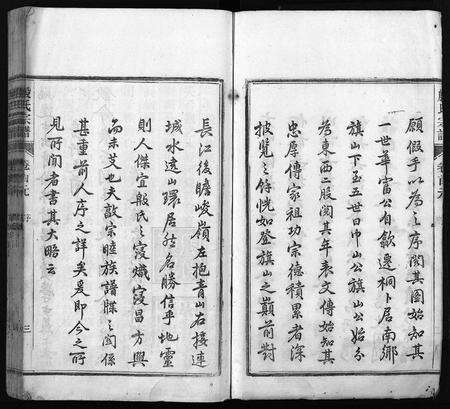 願假手以為之序閱其圖始知其
一世華甯公自歙遷桐卜居南鄉
旗山下至五世日中山公旗山公始分
為東西二股閱其年表文傳始知其
忠厚傳家祖功宗德積累者深
披覽之餘恍如登旗山之巔前對
長江後瞻峻嶺左抱青山右接連
城水遶山環居然名勝信乎地靈
則人傑宜殷氏之寖熾寖昌方興
而未艾也夫敬宗睦族譜牒之關係
甚重前人序之詳矣爰即今之所
見所聞者書其大略云
殷氏宗譜
卷首
序
三